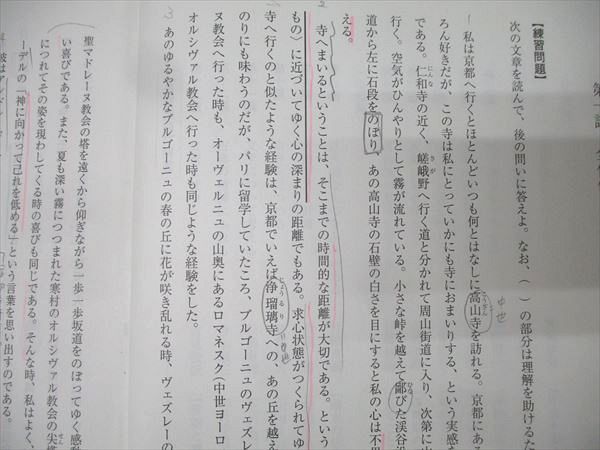 【練習問題】
次の文章を読んで、後の問いに答えよ。なお、（ ）の部分は理解を助けるた
私は京都へ行くとほとんどいつも何とはなしに高山寺を訪れる。京都にある
ろん好きだが、この寺は私にとっていかにも寺におまいりする、という実感を
である。仁和寺の近く、嵯峨野へ行く道と分かれて周山街道に入り、次第に山
行く。空気がひんやりとして霧が流れている。小さな峠を越えて鄙びた渓谷沿
道から左に石段をのぼり、あの高山寺の石壁の白さを目にすると私の心は不思
える。
寺へまいるということは、そこまでの時間的な距離が大切である。という
もの）に近づいてゆく心の深まりの距離でもある。求心状態がつくられてゆ
寺へ行くのと似たような経験は、京都でいえば浄瑠璃寺への、あの丘を越え
のりにも味わうのだが、パリに留学していたころ、ブルゴーニュのヴェズレ
ヌ教会へ行った時も、オーヴェルニュの山奥にあるロマネスク（中世ヨーロ
オルシヴァル教会へ行った時も同じような経験をした。
あのゆるやかなブルゴーニュの春の丘に花が咲き乱れる時、ヴェズレーの
聖マドレーヌ教会の塔を遠くから仰ぎながら一歩一歩坂道をのぼってゆく感動
い喜びである。また、夏も深い霧につつまれた寒村のオルシヴァル教会の尖塔
につれてその姿を現わしてくる時の喜びも同じである。そんな時、私はよく、
ーデルの「神に向かって己れを低める」という言葉を思い出すのである。